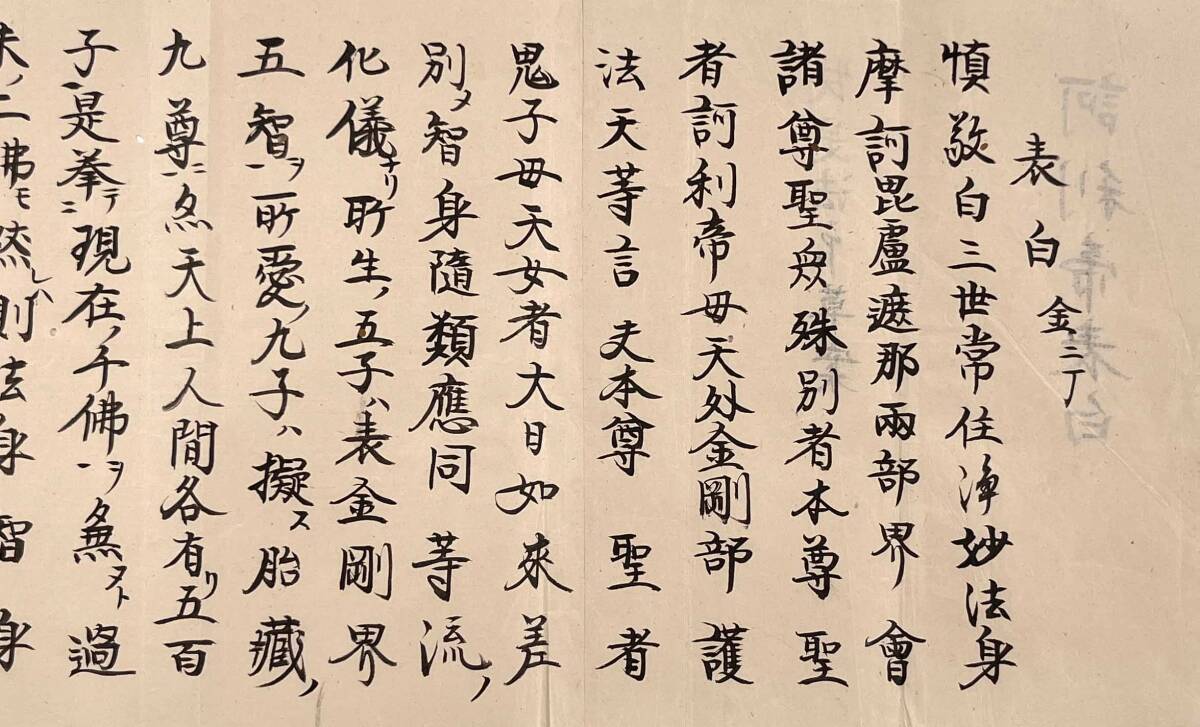 表白 金二丁
慎敬白三世常住浄妙法身
摩訶毘盧遮那兩部界會
諸尊聖衆殊別者本尊聖
者訶利帝母天外金剛部護
法天等言夫本尊聖者
鬼子母天女者大日如來差
別ノ智身隨類應同等流ノ
化儀ナリ所生ノ五子ハ表金剛界
五智ヲ一所愛ノ九子ハ擬ス胎藏ノ
九尊ニ一尒天上人間各有リ五百
子一是挙テ二現在ノ千佛ヲ一尒無ヌト過
未ノ二佛モ然レハ則法身智身